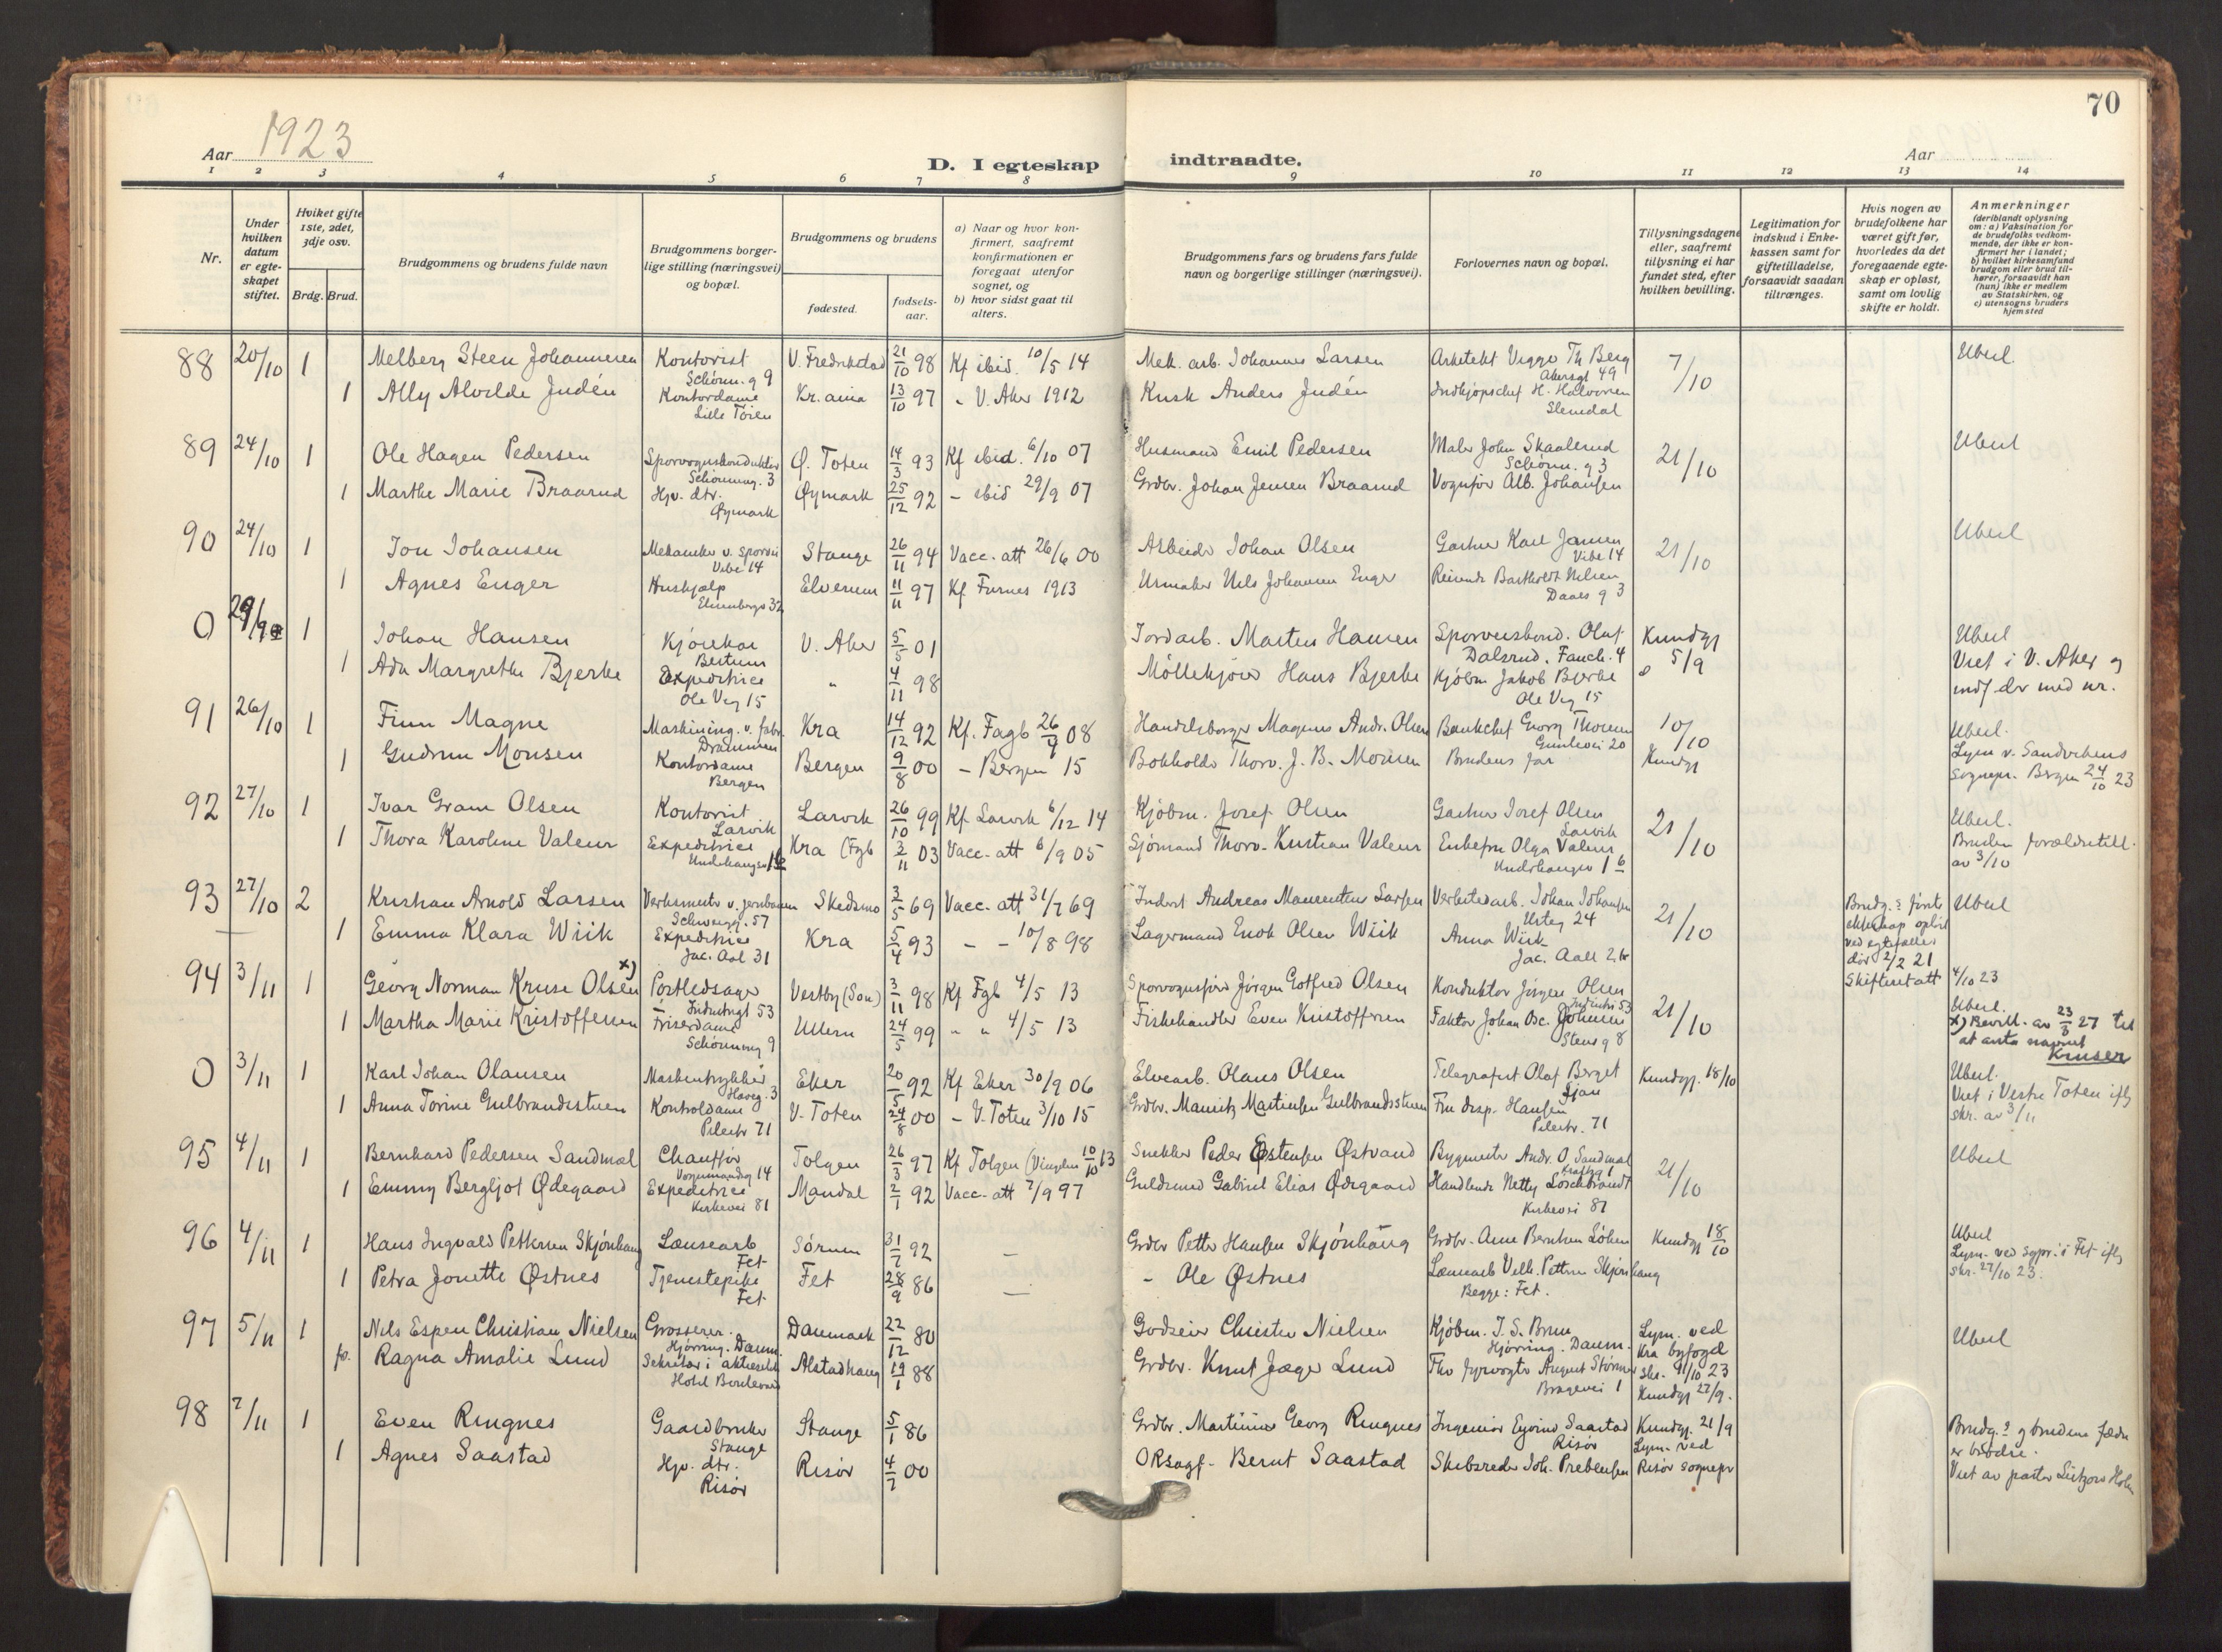 70
Aar 1923
D. I egteskap indtraadte.
Aar
1 2 3 4 5 6 7 8 9 10 11 12 13 14
Nr.
Under hvilken datum er egteskapet stiftet.
Hviket gifte 1ste, 2det, 3dje osv.
Brdg. Brud.
Brudgommens og brudens fulde navn
Brudgommens borgerlige stilling (næringsvei) og bopæl.
Brudgommens og brudens
fødested.
fødselsaar.
a) Naar og hvor konfirmert, saafremt konfirmationen er foregaat utenfor sognet, og
b) hvor sidst gaat til alters.
Brudgommens fars og brudens fars fulde navn og borgerlige stillinger (næringsvei).
Forlovernes navn og bopæl.
Tillysningsdagene eller, saafremt tillysning ei har fundet sted, efter hvilken bevilling.
Legitimation for indskud i Enkekassen samt for giftetilladelse, forsaavidt saadan tiltrænges.
Hvis nogen av brudefolkene har været gift før, hvorledes da det foregaaende egteskap er opløst, samt om lovlig skifte er holdt.
Anmerkninger
(deriblandt oplysning om: a) Vaksination for de brudefolks vedkommende, der ikke er konfirmert her i landet;
b) hvilket kirkesamfund brudgom eller brud tilhører, forsaavidt han (hun) ikke er medlem av Statskirken, og
c) utensogns bruders hjemsted
88 20/10 1 Melberg Steen Johannesen Kontorist Schønn. g 9 V. Fredrikstad 21/10 98 Kf ibid. 10/5 14 Mek. arb. Johannes Larsen Arkitekt Viggo Th Berg Akersgt 49 7/10 Ubesl.
1 Ally Alvilde Judén Kontordame Lille Tøien Kr.ania 13/10 97 - V. Aker 1912 Kusk Anders Judén Indkjøpschef H. Halvorsen Slemdal
89 24/10 1 Ole Hagen Pedersen Sporvognskonduktør Schønning. 3 Ø. Toten 14/3 93 Kf ibid. 6/10 07 Husmand Emil Pedersen Maler John Skaalerud Schønn. g 3 21/10 Ubesl
1 Marthe Marie Braarud Hjv. dtr. Øymark Øymark 25/12 92 - ibid 29/9 07 Grdbr. Johan Jensen Braarud Vognfør Alb. Johansen
90 24/10 1 Jon Johansen Mekaniker v. sporvei Vibe 14 Stange 26/11 94 Vacc. att 26/6 00 Arbeider Johan Olsen Gartner Karl Jansen Vibe 14 21/10 Ubesl
1 Agnes Enger Hushjælp Eilerenbergs 32 Elverum 11/11 97 Kf Furnes 1913 Urmaker Nils Johannes Enger Reisende Bartholdt Nilsen Daaes g 3
0 29/9 1 Johan Hansen Kjørekar Bestum V. Aker 5/5 01 Jordarb. Martin Hansen Sporveiskond. Olaf Dalsrud. Fauch. 4 Kundgj 5/9 Ubesl
1 Ada Margrethe Bjerke Expeditrice Ole Vig 15 " 4/11 98 Møllekjører Hans Bjerke Kjøbm Jakob Bjerke Ole Vig 15 Viet i V. Aker og indf der med nr.
91 26/10 1 Finn Magne Maskining. v. fabr. Drammen Kra 14/12 92 Kf. Fagb 26/4 08 Handelsborger Magnus Andr. Olsen Bankchef Georg Thorsen Gimlevei 20 10/10 Kundgj Ubesl.
1 Gudrun Monsen Kontordame Bergen Bergen 9/8 00 - Bergen 15 Bokholder Thorv. J. B. Monsen Brudens far Lysn v. Sandvikens sognepr. Bergen 24/10 23
92 27/10 1 Ivar Gram Olsen Kontorist Larvik Larvik 26/10 99 Kf Larvik 6/12 14 Kjøbm. Josef Olsen Gartner Josef Olsen Larvik 21/10 Ubesl.
1 Thora Karoline Valeur Expeditrice Underhaugsv 16 Kra (Fgb 3/11 03 Vacc. att 6/9 05 Sjømand Thorv. Kristian Valeur Enkefru Olga Valeur Underhaugsv 16 Bruden forældretill. av 3/10
93 27/10 2 Kristian Arnold Larsen Verksmester v. jernbanen Schweigg. 57 Skedsmo 3/5 69 Vacc. att 31/7 69 Inderst Andreas Maurentius Larsen Verkstedarb. Johan Johansen Usteg 24 21/10 Brudg.s første ekteskap opløst ved egtefælles død 2/2 21 Skifteret att 4/10 23 Ubesl
1 Emma Klara Wiik Expeditrice Jac. Aal 31 Kra 5/4 93 - - 10/8 98 Lagermand Enok Olsen Wiik Anna Wiik Jac. Aall 26
94 3/11 1 Georg Norman Kruse Olsen x) Portleds­ager Industrigt 53 Vestby (Son) 3/11 98 Kf Fgb 4/5 13 Sporvognsfører Jørgen Gotfred Olsen Konduktør Jørgen Olsen Industri 53 21/10 Ubesl.
1 Martha Marie Kristoffersen Friserdame Schønning 9 Ullern 24/5 99 " " 4/5 13 Fiskehandler Even Kristoffersen Faktor Johan Osc. Johnsen Stens g 8 x) Bevill. av 23/3 27 til at anta navnet Kruser
0 3/11 1 Karl Johan Olausen Maskintrykker Haveg. 3 Eker 20/5 92 Kf Eker 30/9 06 Elvearb. Olaus Olsen Telegrafist Olaf Berget Ljan Kundgj. 18/10 Ubesl.
1 Anna Torine Gulbrandsstuen Kontordame Pilestr 71 V. Toten 24/8 00 - V. Toten 3/10 15 Grdbr. Mauritz Martinsen Gulbrandsstuen Fru disp. Hansen Pilestr. 71 Viet i Vestre Toten ifg skr. av 3/11
95 4/11 1 Bernhard Pedersen Sandmæl Chauffør Vognmandsg 14 Tolgen 26/3 97 Kf Tolgen (Vingelen 10/10 13 Snekker Peder Østensen Østvand Bygmester Andr. O. Sandmæl 21/10 Ubesl
1 Emmy Bergljot Ødegaard Expeditrice Kirkevei 81 Mandal 2/1 92 Vacc. att 7/9 97 Guldsmed Gabriel Elias Ødegaard Handlende Netty Loschbrandt Kirkevei 81
96 4/11 1 Hans Ingvald Pettersen Skjønhaug Lensearb Fet Sørum 31/7 92 — Grdbr Petter Hansen Skjønhaug Grdbr. Arne Berntsen Løken Kundgj 18/10 Ubesl
1 Petra Jonette Østnes Tjenestepike Fet Fet 28/9 86 — - Ole Østnes Lensearb Vilh. Pettersen Skjønhaug Begge: Fet. Lysn. ved sgpr. i Fet ifg skr. 27/10 23.
97 5/11 1 Nils Espen Christian Nielsen Grosserer. Hjørring. Danm. Danmark 22/12 80 Godseier Christen Nielsen Kjøbm. J. S. Brun Hjørring. Danm. Lysn. ved Kra byfogd Ubesl
fr. Ragna Amalie Lund Sekretær i aktieselsk Hotel Boulevard Alstadhaug 19/1 88 Grdbr. Knut Jæger Lund Thv fyrvogter August Størmer Bragevei 1 skr. 9/10 23 Kundgj 27/9.
98 7/11 1 Even Ringnes Gaardbruker Stange Stange 5/1 86 Grdbr. Martinius Georg Ringnes Ingeniør Eyvind Saastad Risør Kundgj. 21/9 Brudg.s og brudens fædre er brødre.
1 Agnes Saastad Hjv. dtr. Risør Risør 4/7 00 ORsagf. Bernt Saastad Skibsreder Joh. Preblensen Lysn. ved Risør sognepr Viet av pastor Lützow Holm